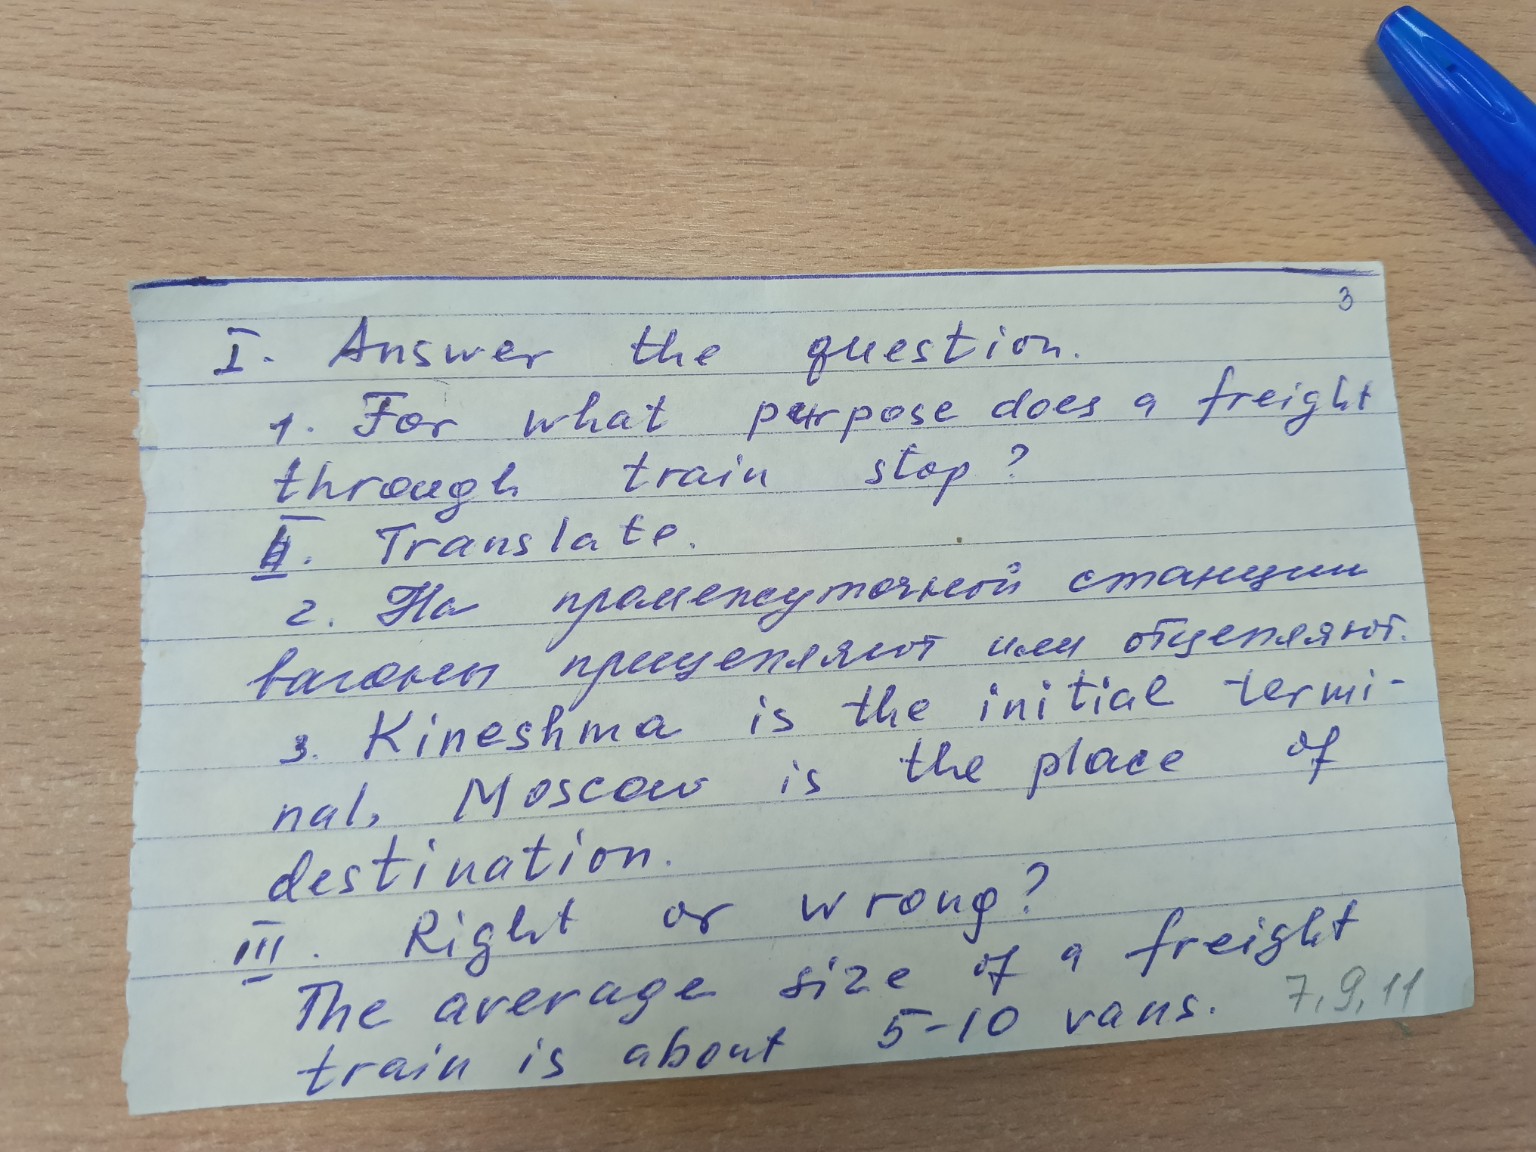 3
I. Answer the question.
1. For what purpose does a freight
through train stop?
II. Translate.
2. На промежуточной станции
вагоны прицепляют или отцепляют.
3. Kineshma is the initial termi-
nal, Moscow is the place of
destination.
III. Right or wrong?
The average size of a freight
train is about 5-10 vans.
7, 9, 11